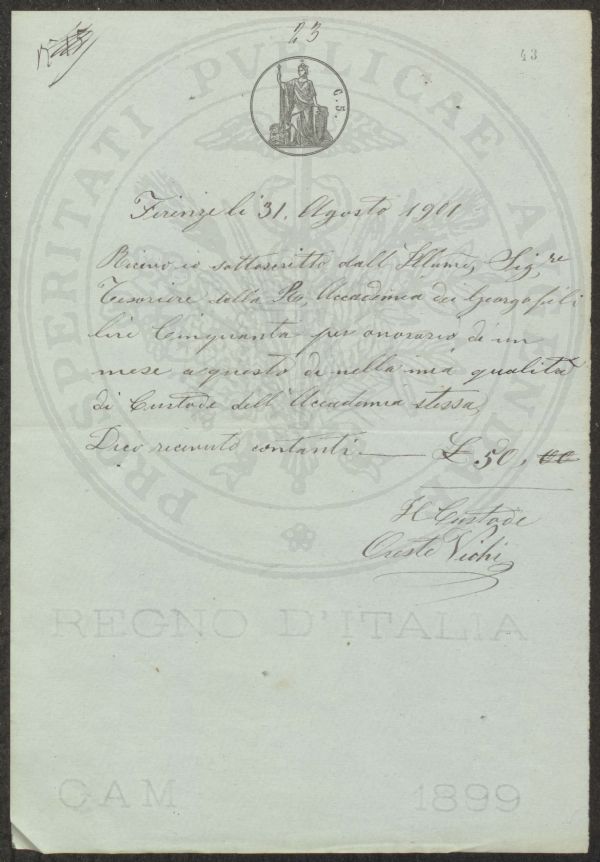 23
43
C. 5.
PROSPERITATI PVBLICAE AVGENDAE
Firenze li 31. Agosto 1901
Ricevo io sottoscritto dall' Illume, Sig.re
Tesoriere della R. Accademia dei Georgofili
lire Cinquanta per onorario di un
mese a questo dì nella mia qualità
di Custode dell' Accademia stessa,
Dico ricevuto contanti — £ 50, 00
Il Custode
Oreste Vichi
REGNO D'ITALIA
CAM 1899